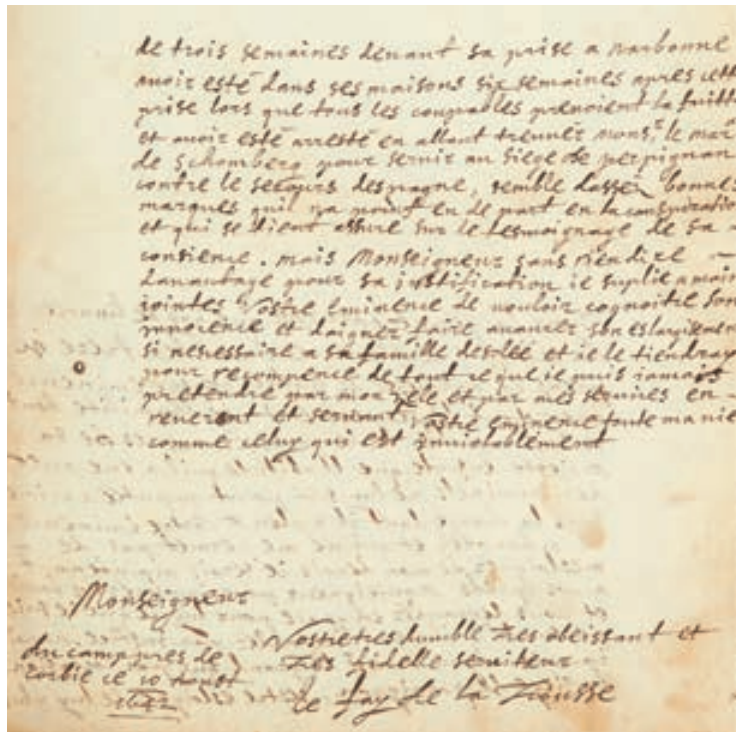 de trois semaines devant sa prise a narbonne
avoir esté dans ses maisons six semaines apres cette
prise lors que tous les coupables prenoient la fuitte
et avoir esté arresté en allant trenner mons.r le mar
de Schomberg pour servir au siege de perpignan
contre le secours despagne, semble dassez bonnes
marques quil na point eu de part en la conspiration
et qui se tient assure sur le tesmoignage de sa
consience. mais Monseigneur sans rien dire
davantage pour sa justification ie suplie a main
jointes Vostre eminence de vouloir cognoitre son
innocence et daigner faire avancer son eslargissement
si necessaire a sa famille et ie le tiendray
pour recompence de tout ce que ie puis iamais
pretendre par mon zele et par mes services en
reverent et servant vostre eminence toute ma vie
comme celuy qui est inviolablement
Monseigneur
Vostre tres humble tres obeissant et
du camp pres de
tres fidelle serviteur
corbie ce 10 aoust
le fay de la Trousse
1642